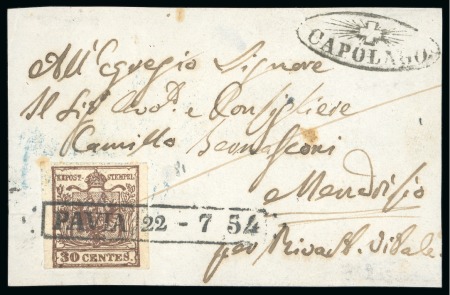 CAPOLAGO
All'Egregio Signore
Il Sig. Avv.° e Consigliere
Camillo Bernasconi
Mendrisio
per Riva S. Vitale
KKPOST-STEMPEL
PAVIA 22 - 7 54
30 CENTES.